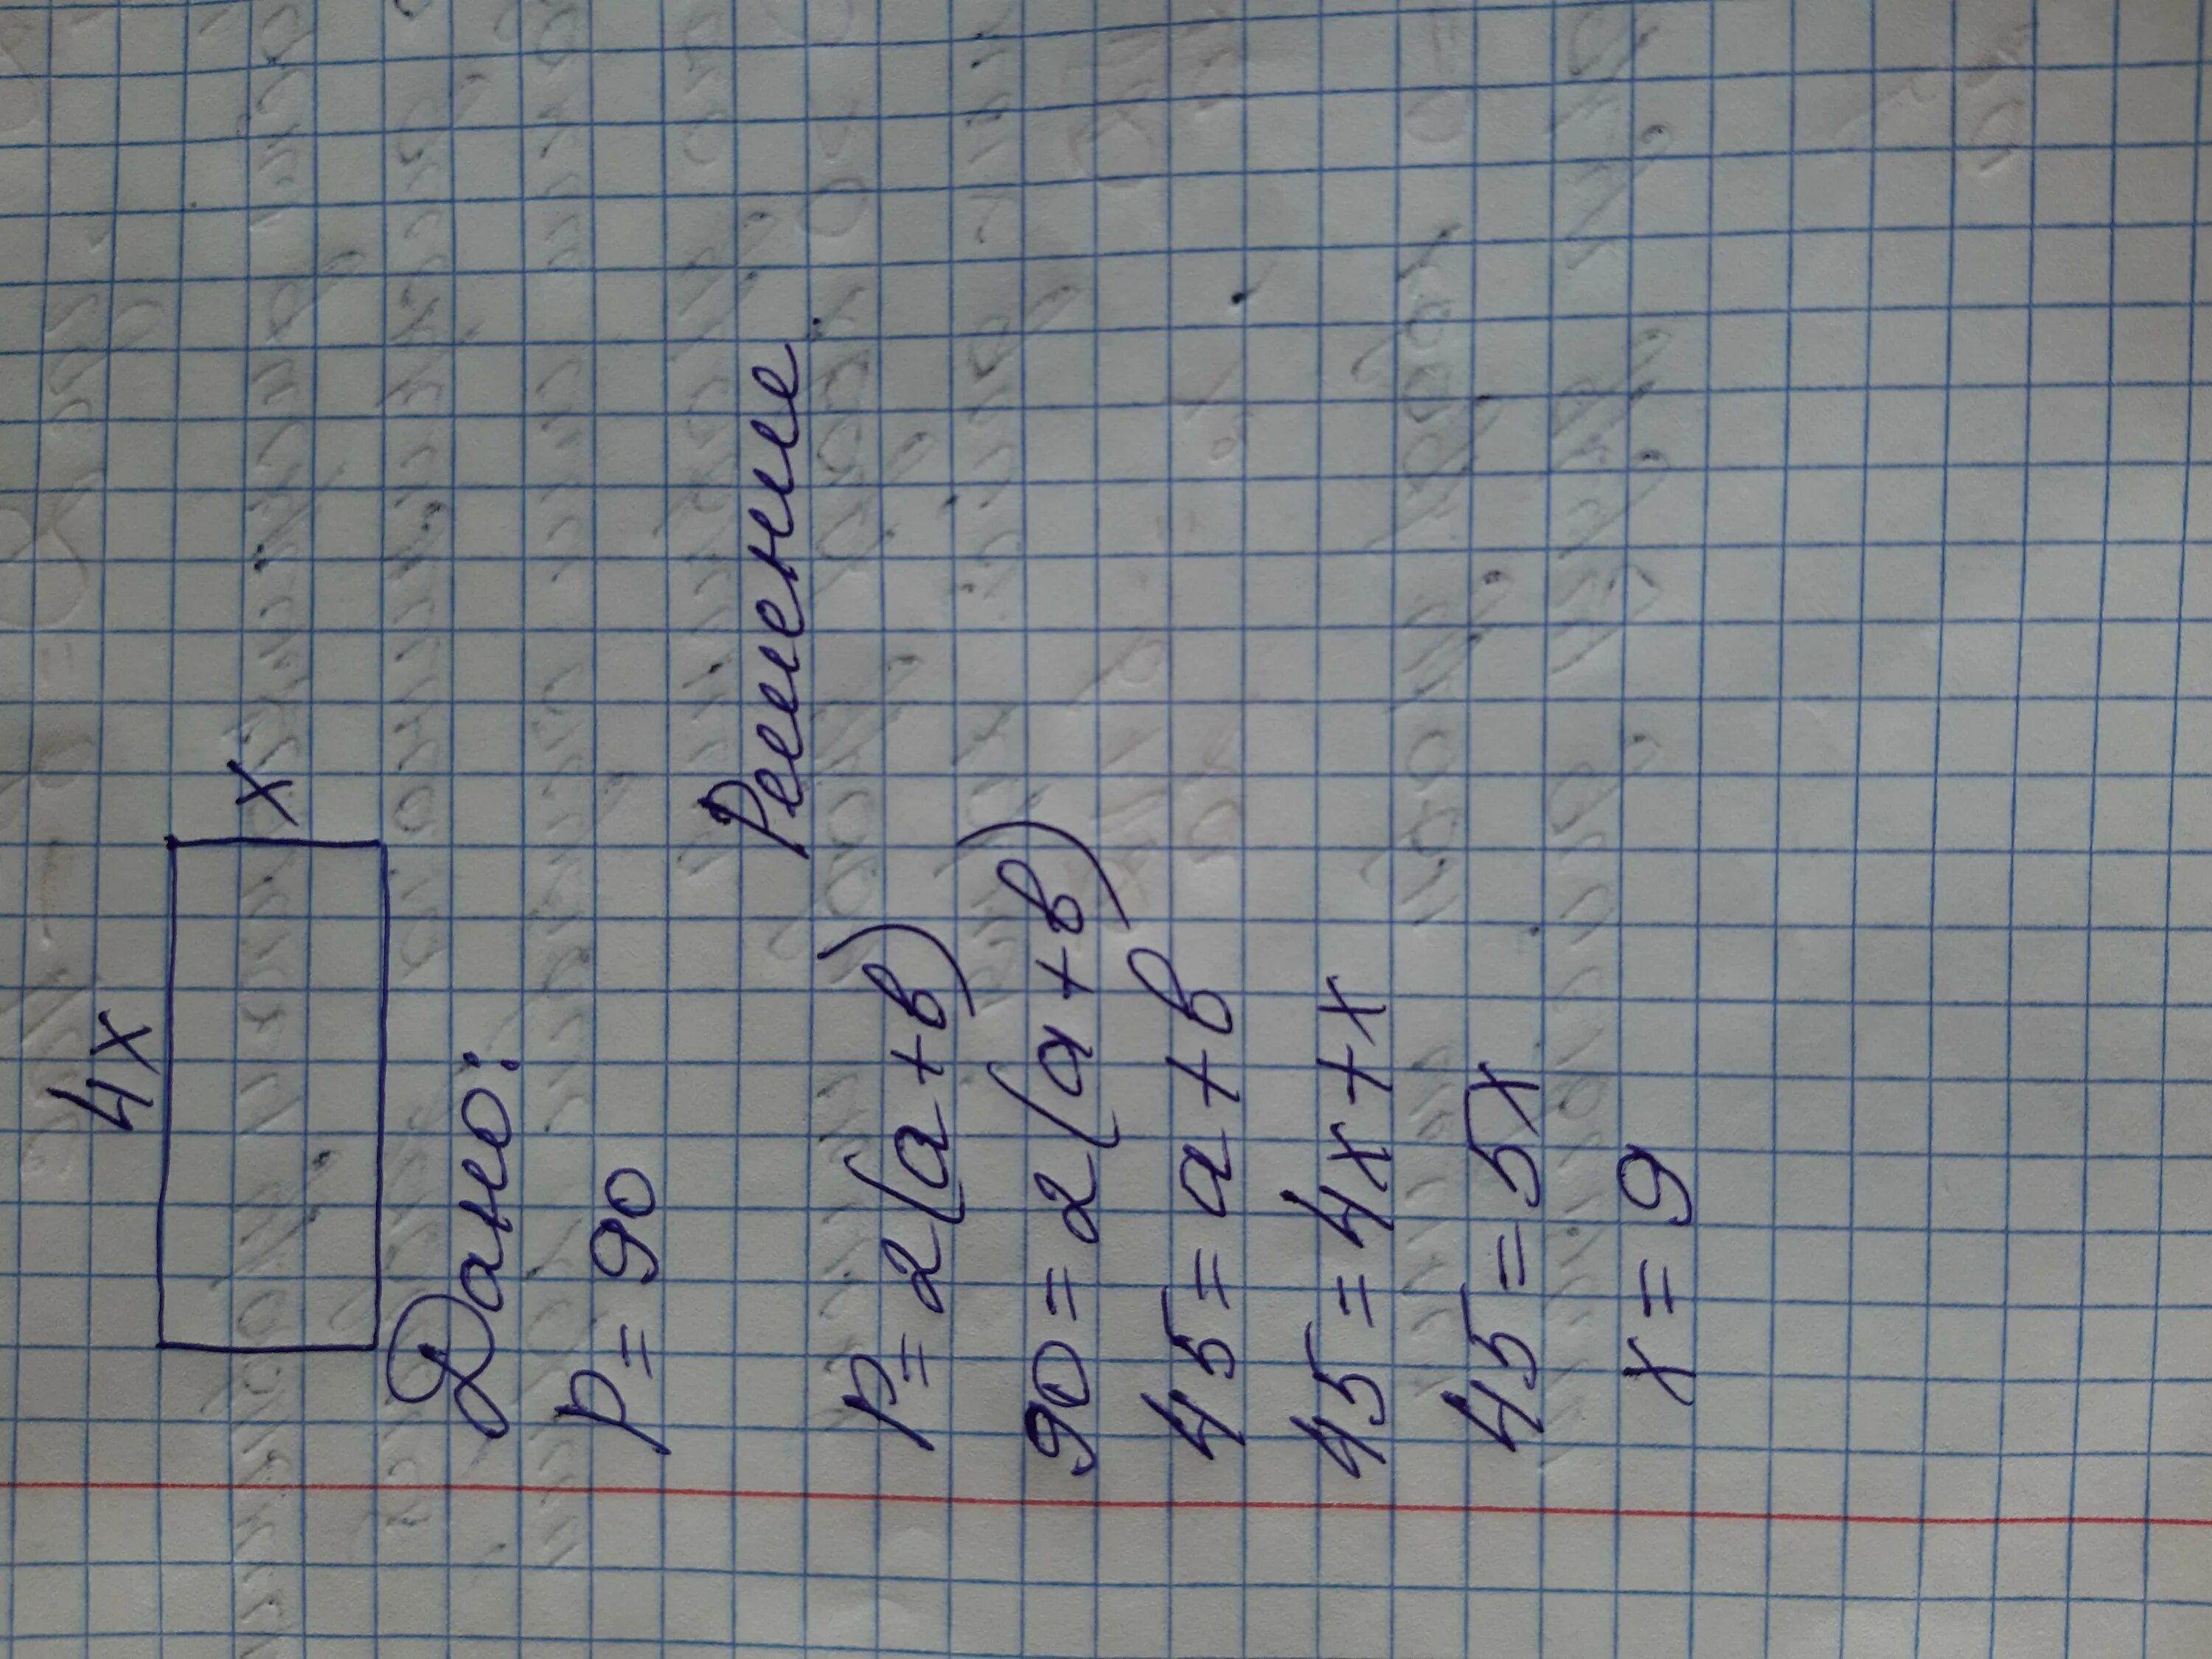 4x
x
Дано:
P = 90
Решение.
P = 2(a+в)
90 = 2(a+в)
45 = a+в
45 = 4x+x
45 = 5x
x = 9